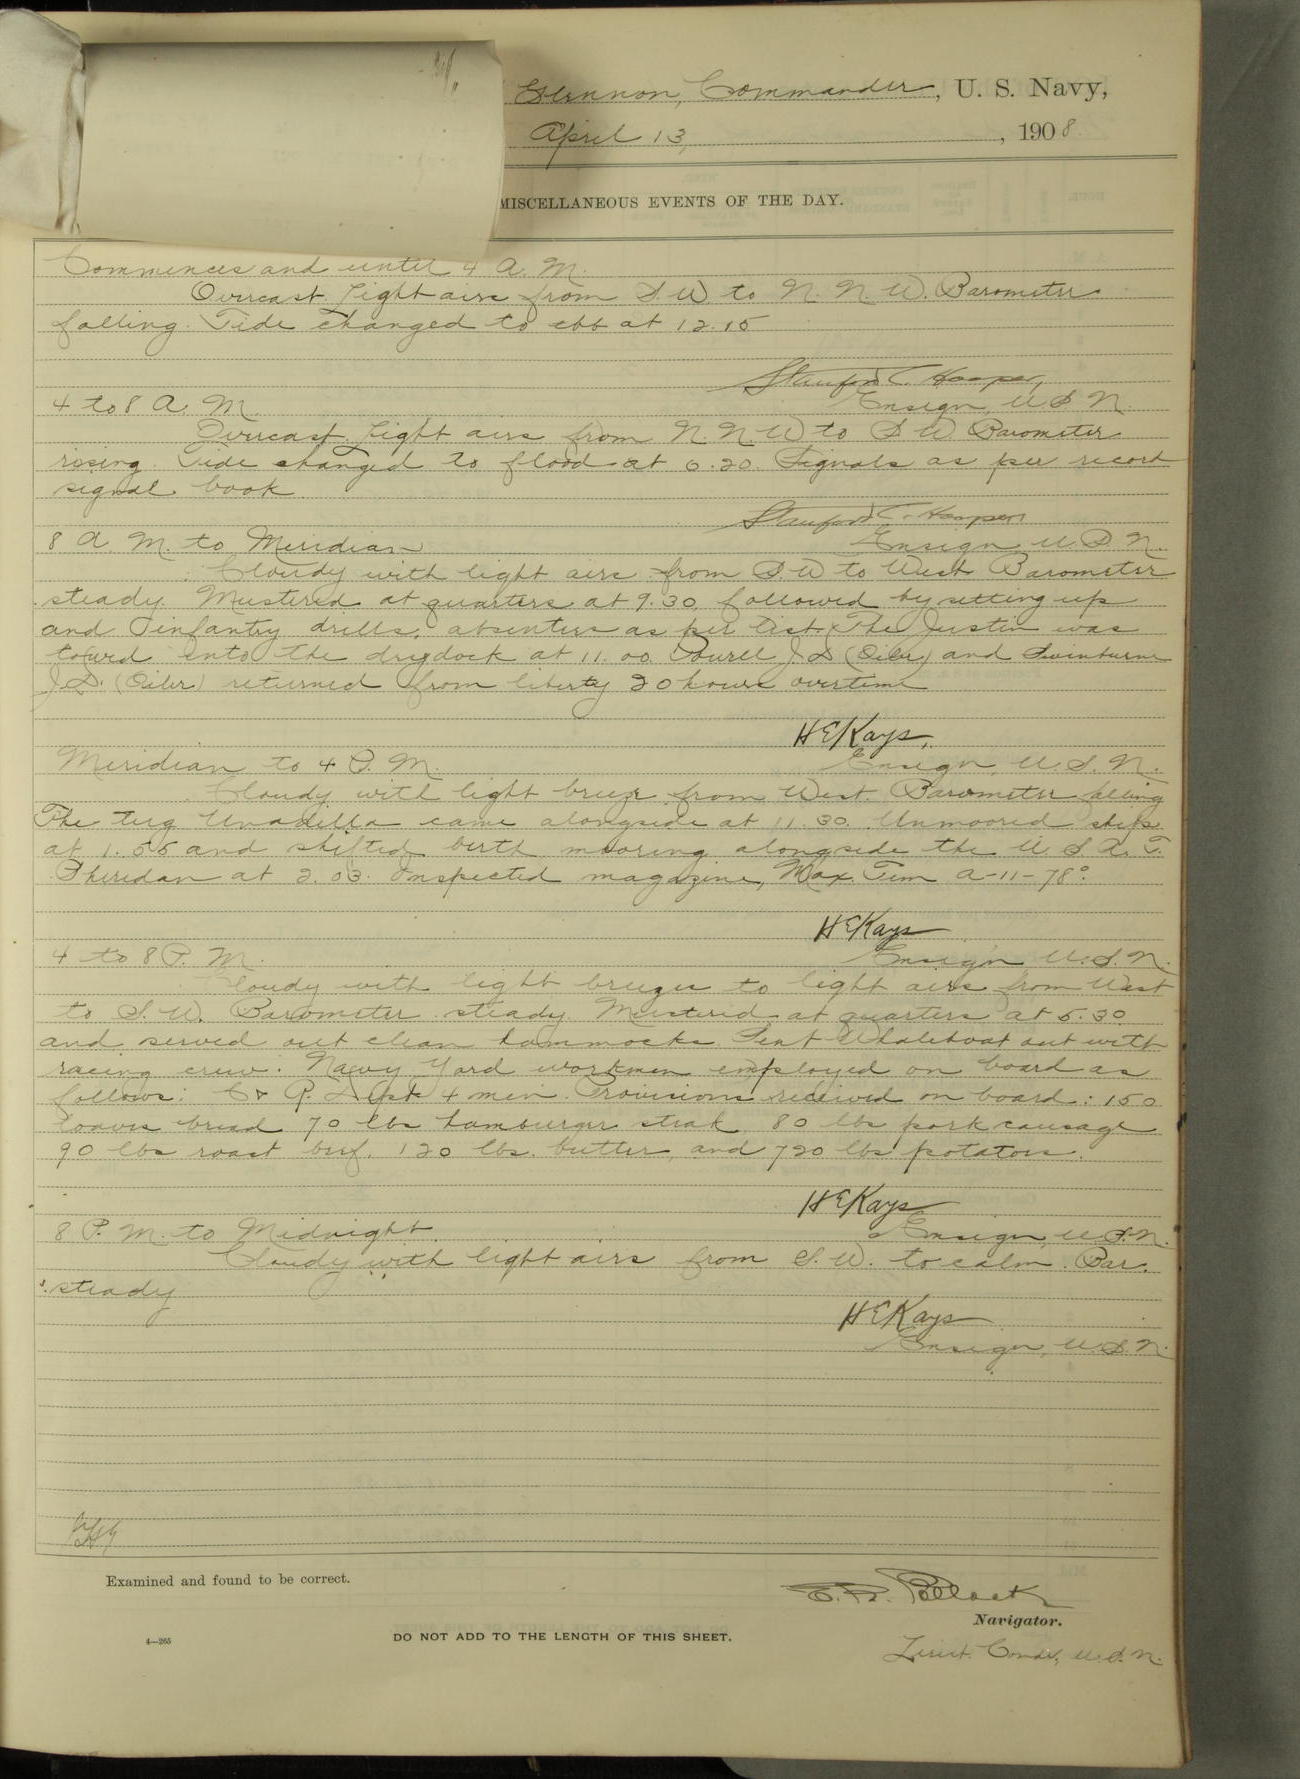 Glennon, Commander, U. S. Navy,
April 13, 1908.
MISCELLANEOUS EVENTS OF THE DAY.
Commences and until 4 A. M.
Overcast. Light airs from S. W. to N. N. W. Barometer
falling. Tide changed to ebb at 12.15
Stanford C. Hooper,
4 to 8 A. M. Ensign, U S N.
Overcast. Light airs from N. N. W. to S W Barometer
rising. Tide changed to flood at 6.20. Signals as per record
signal book
Stanford C. Hooper
8 A. M. to Meridian Ensign U. S. N.
Cloudy with light airs from S. W to West Barometer
steady. Mustered at quarters at 9.30 followed by setting up
and infantry drills, absentees as per list. The Justin was
towed into the drydock at 11.00. Powell J. D (Oiler) and Swinburne
J. D. (Oiler) returned from liberty 20 hours overtime
H E Kays,
Meridian to 4 P. M. Ensign, U. S. N.
Cloudy with light breeze from West. Barometer falling
The tug Unadilla came alongside at 11.30. Unmoored ship
at 1.55 and shifted berth mooring alongside the U. S. A. T.
Sheridan at 2.03. Inspected magazine, Max. Tem A-11-78°
H E Kays
4 to 8 P. M. Ensign U. S. N.
Cloudy with light breezes to light airs from West
to S. W. Barometer steady. Mustered at quarters at 5.30
and served out clean hammocks. Sent Whaleboat out with
racing crew. Navy Yard workmen employed on board as
follows: C & R. Dept 4 men. Provisions received on board: 150
loaves bread 70 lbs hamburger steak, 80 lbs pork sausage
90 lbs roast beef. 120 lbs. butter, and 720 lbs potatoes.
H E Kays
8 P. M. to Midnight Ensign, U. S. N.
Cloudy with light airs from S. W. to calm. Bar.
steady
H E Kays
Ensign, U. S. N.
Examined and found to be correct.
E. R. Pollock
Navigator.
4—265
DO NOT ADD TO THE LENGTH OF THIS SHEET.
Lieut. Comdr, U. S. N.